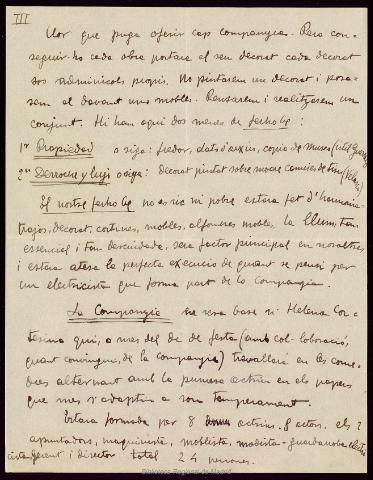 III
llor que puga oferir cap companyia. Pero con-
seguir-ho cada obra portara el seu decorat cada decorat
sos adminicols propis. No pintarem un decorat i posa-
rem al davant unes mobles. Pensarem i realitzarem un
conjunt. Hi han aqui dos menes de
1er Propiedad o siga: fredor, dats d'arxius, copia de museu
2on Derroche y lujo o siga: decorat pintat sobre
El nostre no es ric ni pobre estara fet d'harmonia
trajos, decorat, cortines, mobles, alfombres mobles, la llum, tan
essencial i tan descuidada, sera factor principal en nosaltres
i estara atesa la perfecta execucio de quant se pensi per
un electricista que forma part de la Companyia.
La Companyia sera base si Helena Cor-
tesina qui, a mes del de festa (amb col-loboració,
quant convingue, de la companyia) travellara en les come-
dies alternant amb la primera actriu en els papers
que mes s'adaptin a son temperament.
Estara formada per 8 actrius. 8 actors. els 2
apuntadors, maquinista, moblista, modista-guardaroba, electri
cista, gerent i director total 24 persones.
Biblioteca Regional de Madrid